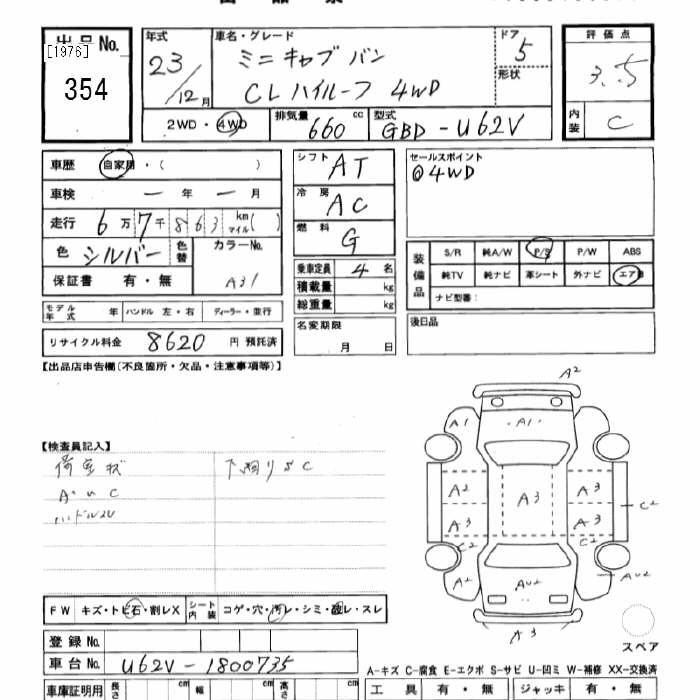 出品No.
[1976]
354
年式
23/12月
車名・グレード
ミニキャブ バン
CLハイルーフ 4WD
ドア
5
形状
評価点
3.5
内装
C
2WD・4WD
排気量
660 cc
型式
GBD-U62V
車歴 自家用・( )
車検 ー 年 ー 月
走行 6万7千863 km マイル( )
色 シルバー
色替
カラーNo.
A31
保証書 有・無
モデル年式 年 ハンドル 左・右 ディーラー・並行
リサイクル料金 8620 円 預託済
シフト AT
冷房 AC
燃料 G
乗車定員 4 名
積載量 kg
総重量 kg
名変期限
月 日
セールスポイント
◎4WD
装備品
S/R 純A/W P/S P/W ABS
純TV 純ナビ 革シート 外ナビ エアB
ナビ型番:
後日品
【出品店申告欄(不良箇所・欠品・注意事項等)】
【検査員記入】
荷室キズ
下廻りSC
ハンドルスレ
A2
A1
A1
A2
A3
A3
A3
A3
C2
C2
C2
A2
AU2
AU2
A3
スペア
FW キズ・トビ石・割レX
シート内装 コゲ・穴・汚レ・シミ・破レ・スレ
登録No.
車台No. U62V-1800735
車庫証明用 長さ cm 幅 cm 高さ cm
A-キズ C-腐食 E-エクボ S-サビ U-凹ミ W-補修 XX-交換済
工具 有・無 ジャッキ 有・無